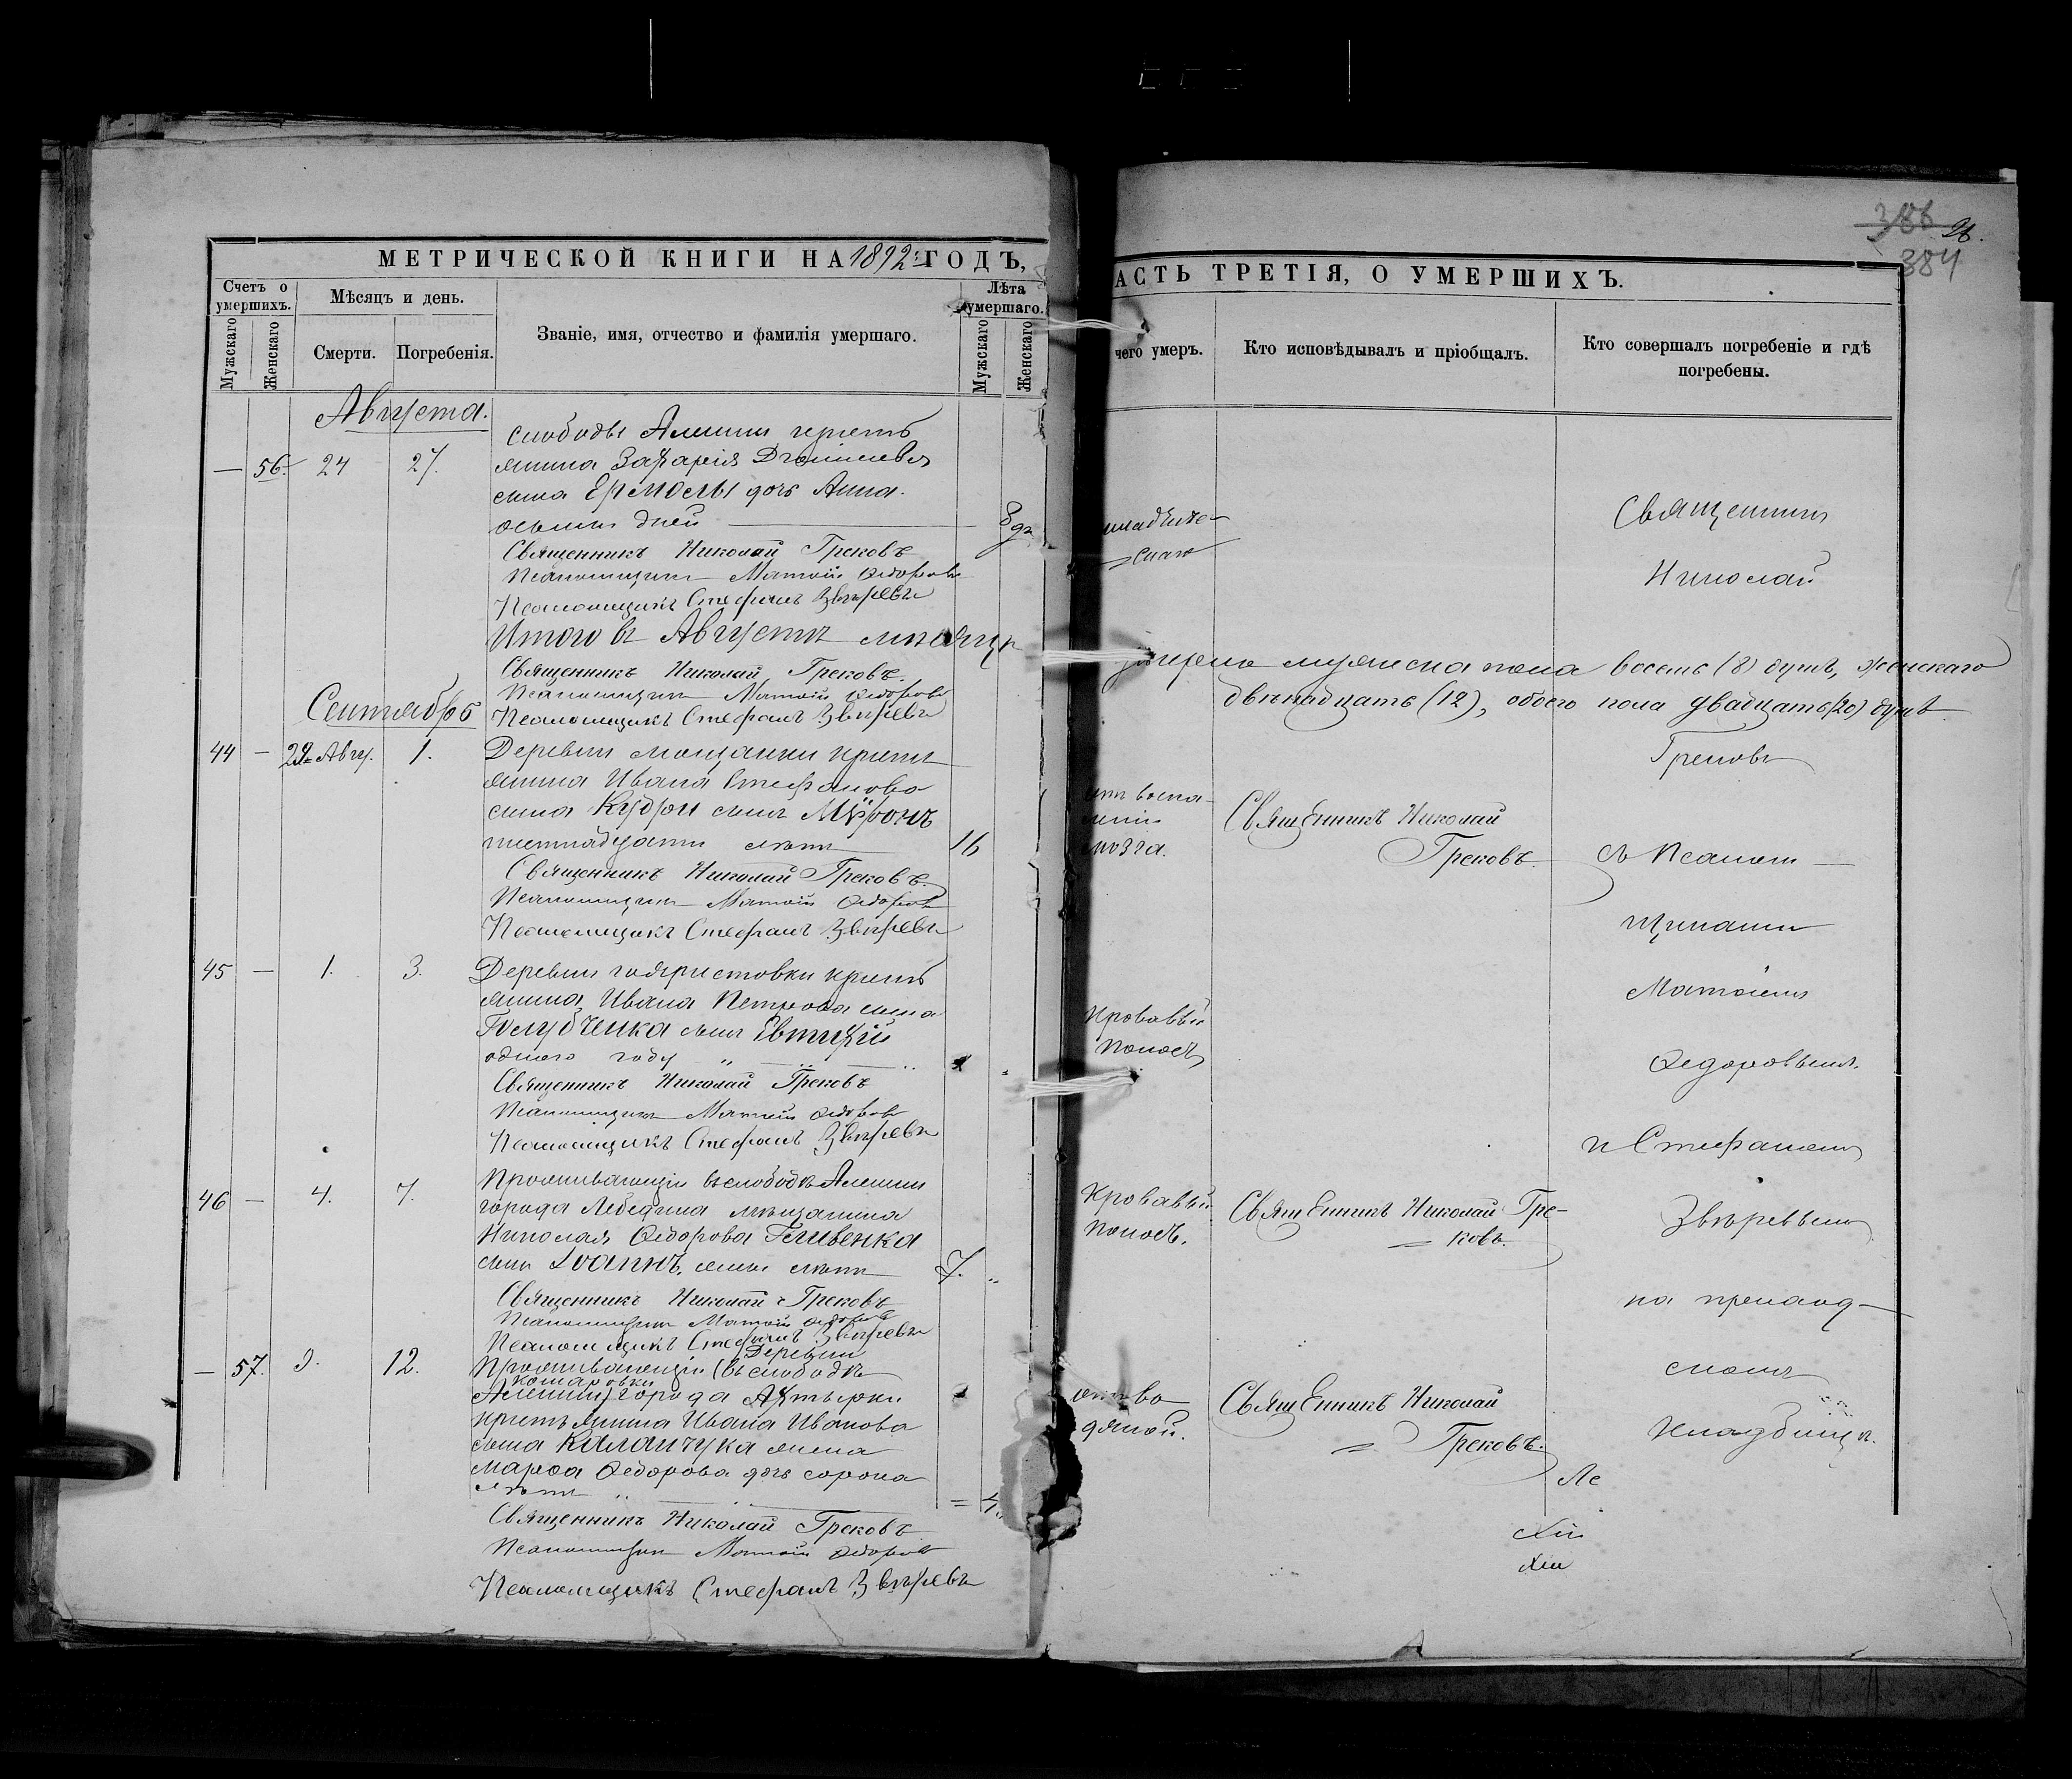 386
26.
384
МЕТРИЧЕСКОЙ КНИГИ НА 1892 ГОДЪ,
АСТЬ ТРЕТІЯ, О УМЕРШИХЪ.
Счетъ о умершихъ.
Мужскаго
Женскаго
Мѣсяцъ и день.
Смерти.
Погребенія.
Званіе, имя, отчество и фамилія умершаго.
Лѣта умершаго.
Мужскаго
Женскаго
чего умеръ.
Кто исповѣдывалъ и пріобщалъ.
Кто совершалъ погребеніе и гдѣ погребены.
Августа.
— 56. 24 27.
слободы Алешни кресть
янина Захарія Діонисіева
сына Ермолы дочь Анна.
осьми дней — 8 дн
Священникъ Николай Грековъ
Псаломщикъ Матѳій Ѳедоровъ
Псаломщикъ Стефанъ Звѣревъ
Итого въ Августѣ мѣсяцѣ
умерло мужеска пола восемь (8) душъ, женскаго
двѣнадцать (12), обоего пола двадцать (20) душъ.
Священникъ Николай Грековъ.
Псаломщикъ Матѳій Ѳедоровъ
Псаломщикъ Стефанъ Звѣревъ
Сентябрь
44 — Авгу. 1.
Деревни кресть
янина Ивана Стефанова
сына Кудри сынъ Мѵронъ
шестнадцати лѣтъ 16
мозга.
Священникъ Николай
Грековъ.
Священникъ Николай Грековъ.
Псаломщикъ Матѳій Ѳедоровъ
Псаломщикъ Стефанъ Звѣревъ
45 — 1. 3.
Деревни кресть
янина Ивана Петрова сына
Голубченка сынъ Евтихій
одного году
Кровавый
поносъ
Священникъ Николай Грековъ
Псаломщикъ Матѳій Ѳедоровъ
Псаломщикъ Стефанъ Звѣревъ
46 — 4. 7.
Проживающій въ слободѣ Алешни
города Лебедина мѣщанина
Николая Ѳедорова
сынъ Іоаннъ, семи лѣтъ 7.
Кровавый
поносъ.
Священникъ Николай Гре-
ковъ.
Священникъ Николай Грековъ
Псаломщикъ Матѳій Ѳедоровъ
Псаломщикъ Стефанъ Звѣревъ
— 57. 9. 12.
Деревни
Проживающій (въ слободѣ
Комаровки
Алешни) города Ахтырки
крестьянина Ивана Иванова
сына Каланчука жена
Марѳа Ѳедорова дочь сорока
лѣтъ
отъ во
дяной.
Священникъ Николай
Грековъ.
Священникъ Николай Грековъ
Псаломщикъ Матѳій Ѳедоровъ
Псаломщикъ Стефанъ Звѣревъ
младенче-
скаго
Священникъ
Николай
Грековъ
съ псалом-
щиками
Матѳіемъ
Ѳедоровымъ
и Стефаномъ
Звѣревымъ
на приход-
скомъ
кладбищѣ.